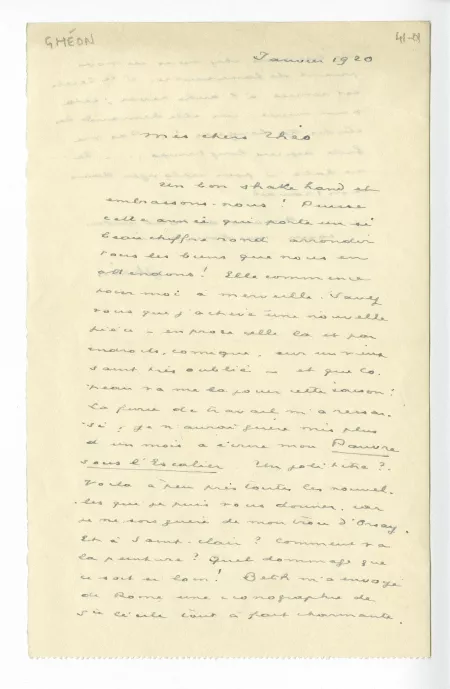 GHÉON
Janvier 1920
Mes chers Théo
Un bon shake hand et
embrassons-nous ! Puisse
cette année qui porte un si
beau chiffre rond arrondir
tous les biens que nous en
attendons ! Elle commence
pour moi à merveille. Savez
vous que j'achève une nouvelle
pièce – en prose celle là et par
endroits, comique, sur un vieux
saint très oublié – et que Co-
peau va me la jouer cette saison ?
La furie de travail m'a ressai-
si ; je n'aurai guère mis plus
d'un mois à écrire mon Pauvre
sous l'Escalier. Un joli titre ?
Voilà à peu près toutes les nouvel-
les que je puis vous donner, car
je ne sors guère de mon trou d'Orsay.
Et à Saint-Clair ? Comment va
la peinture ? Quel dommage que
ce soit si loin ! Beth m'a envoyé
de Rome une iconographie de
Ste Cécile tout à fait charmante.